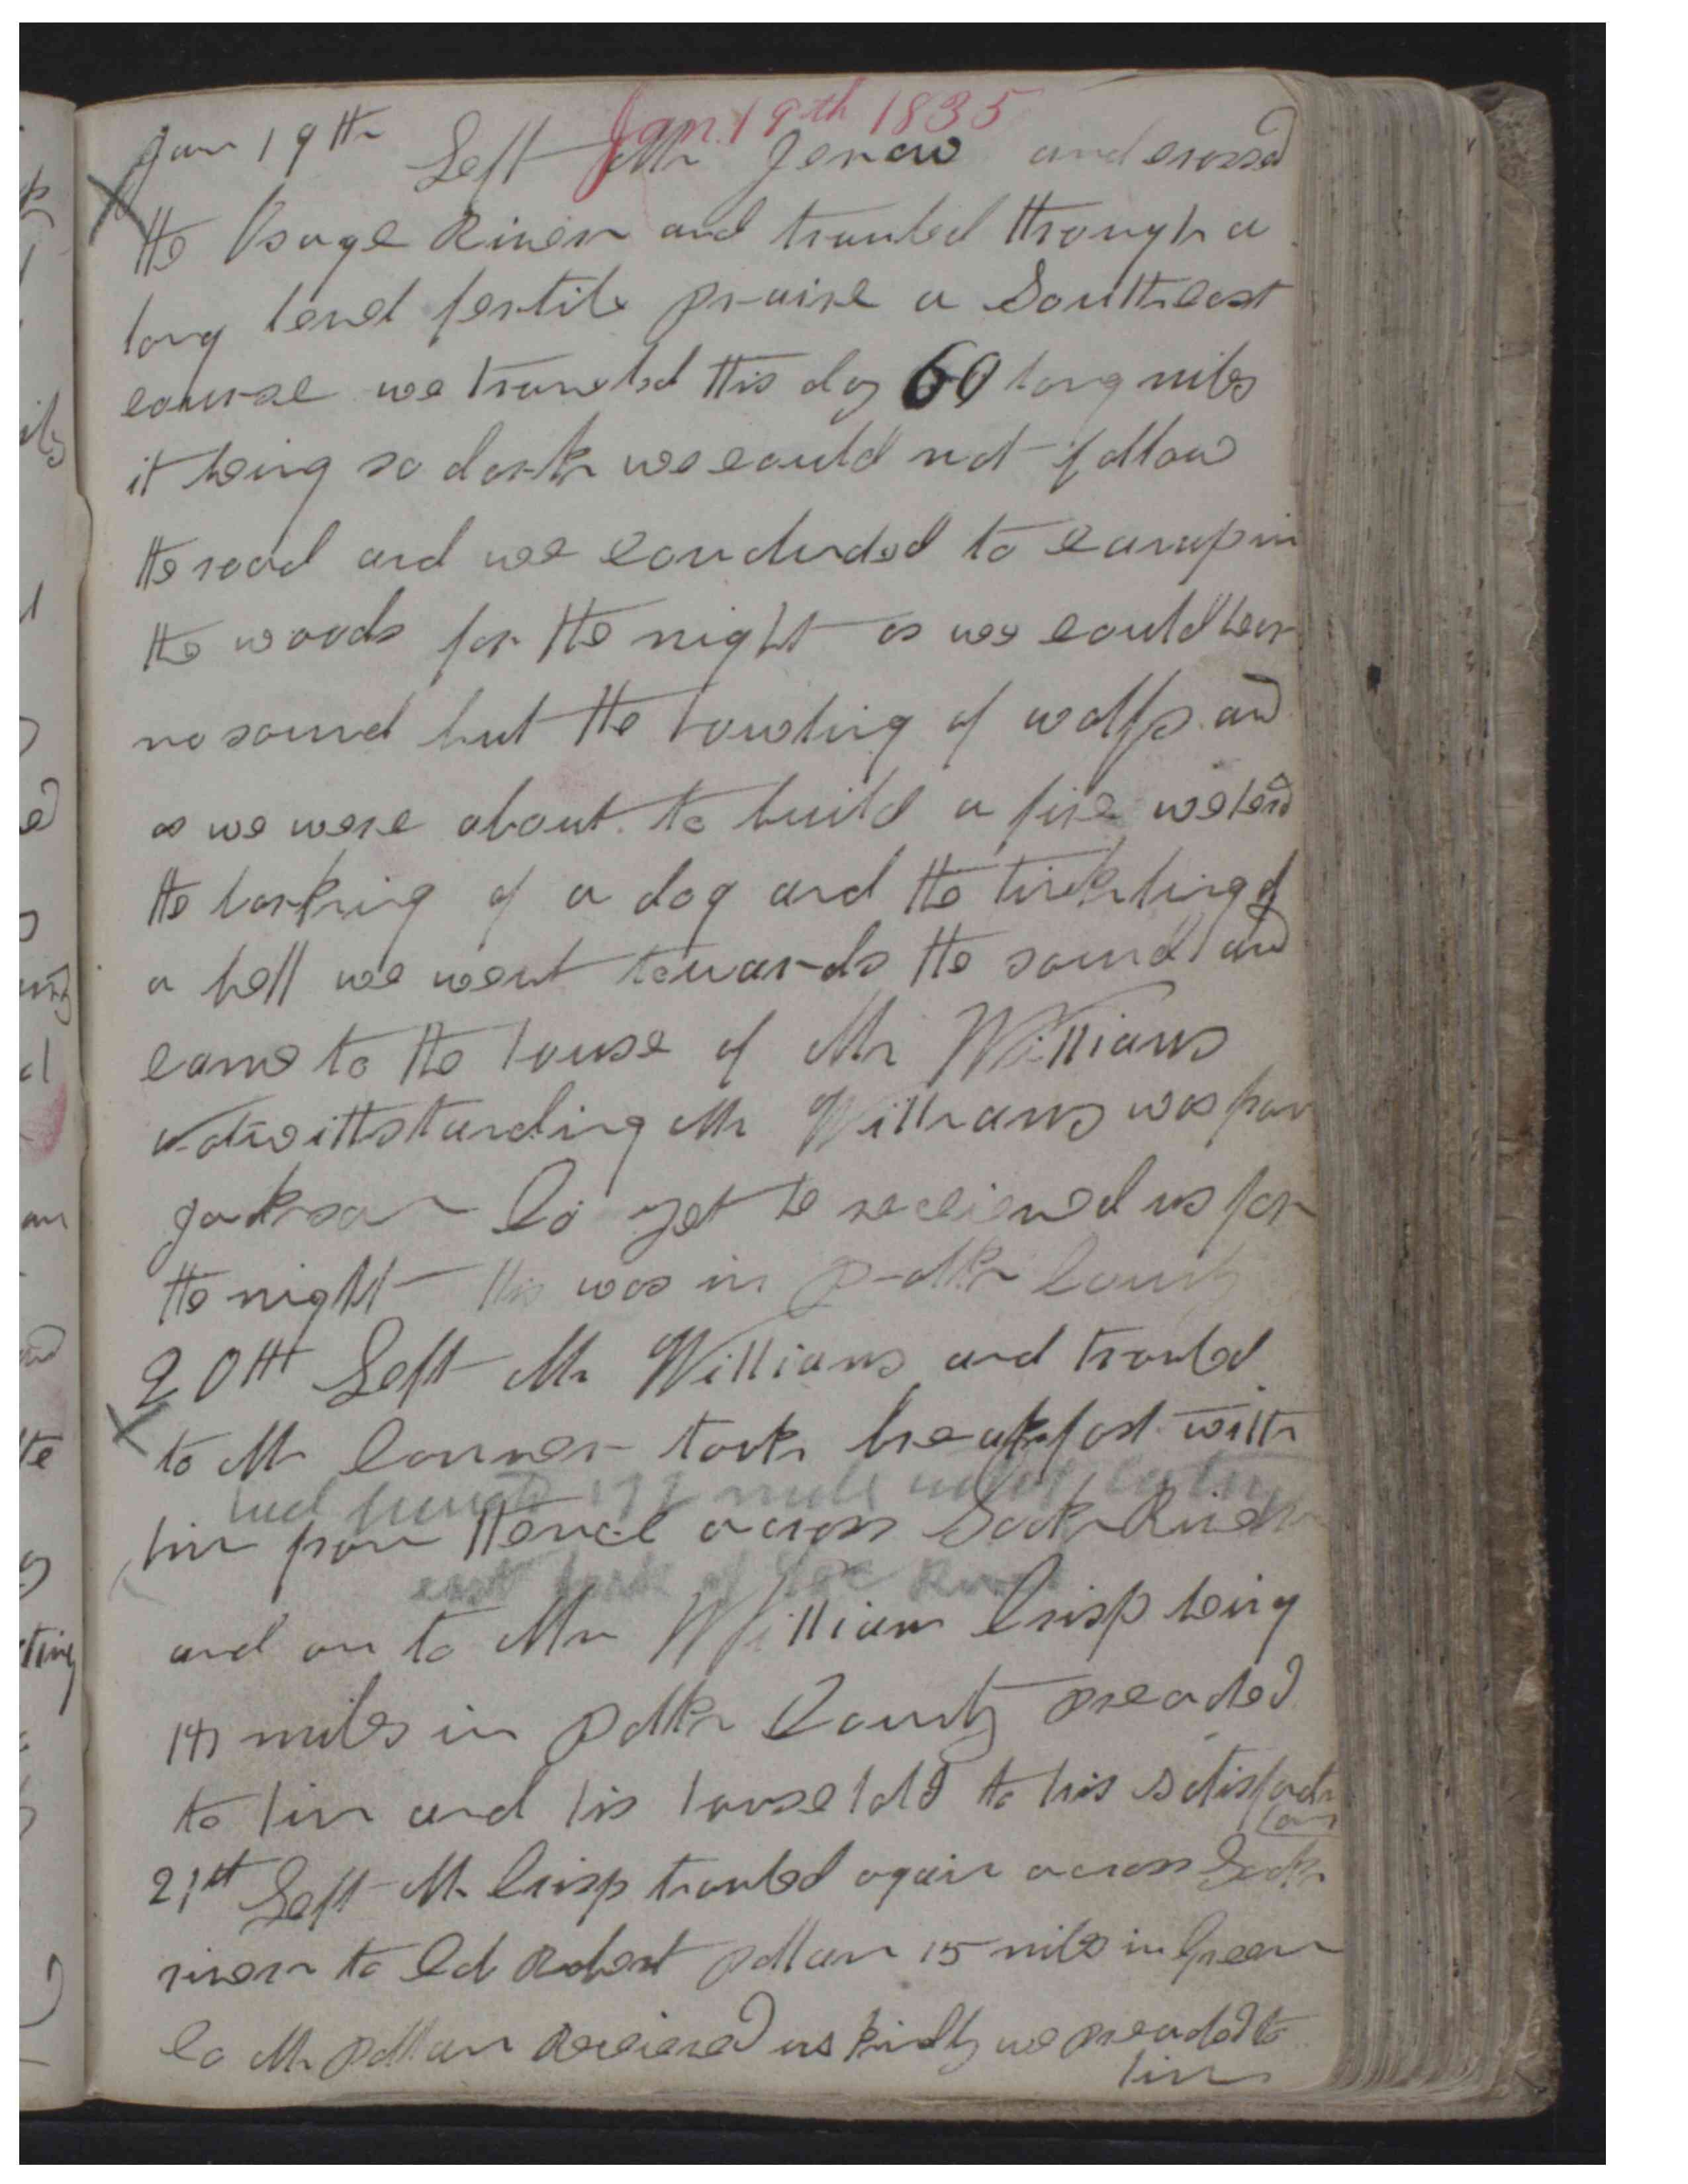 Jan. 19th 1835
Jan 19th Left Mr Jerew and crossed
the Osage River and traveled through a
long level fertile praire a Southeast
course we traveled this day 60 long miles
it being so dark we could not follow
the road and we concluded to camp in
the woods for the night as we could hear
no sound but the howling of wolfs and
as we were about to build a fire we herd
the barking of a dog and the tinkling of
a bell we went towards the sound and
came to the house of Mr Williams
notwithstanding Mr Williams was from
Jackson Co yet he recieved us for
the night this was in Polk County
20th Left Mr Williams and traveled
to Mr Conner took breakfast with
had
him from thence across Sock River
east fork of Sock River
and on to Mr William Crisp being
miles in Polk County preached
to him and his household to his satisfact
ion
21st Left Mr Crisp traveled again across Sock
river to Ed Robert Pattan 15 miles in Green
Co Mr Pattan Recieved us kindly we preached to
him